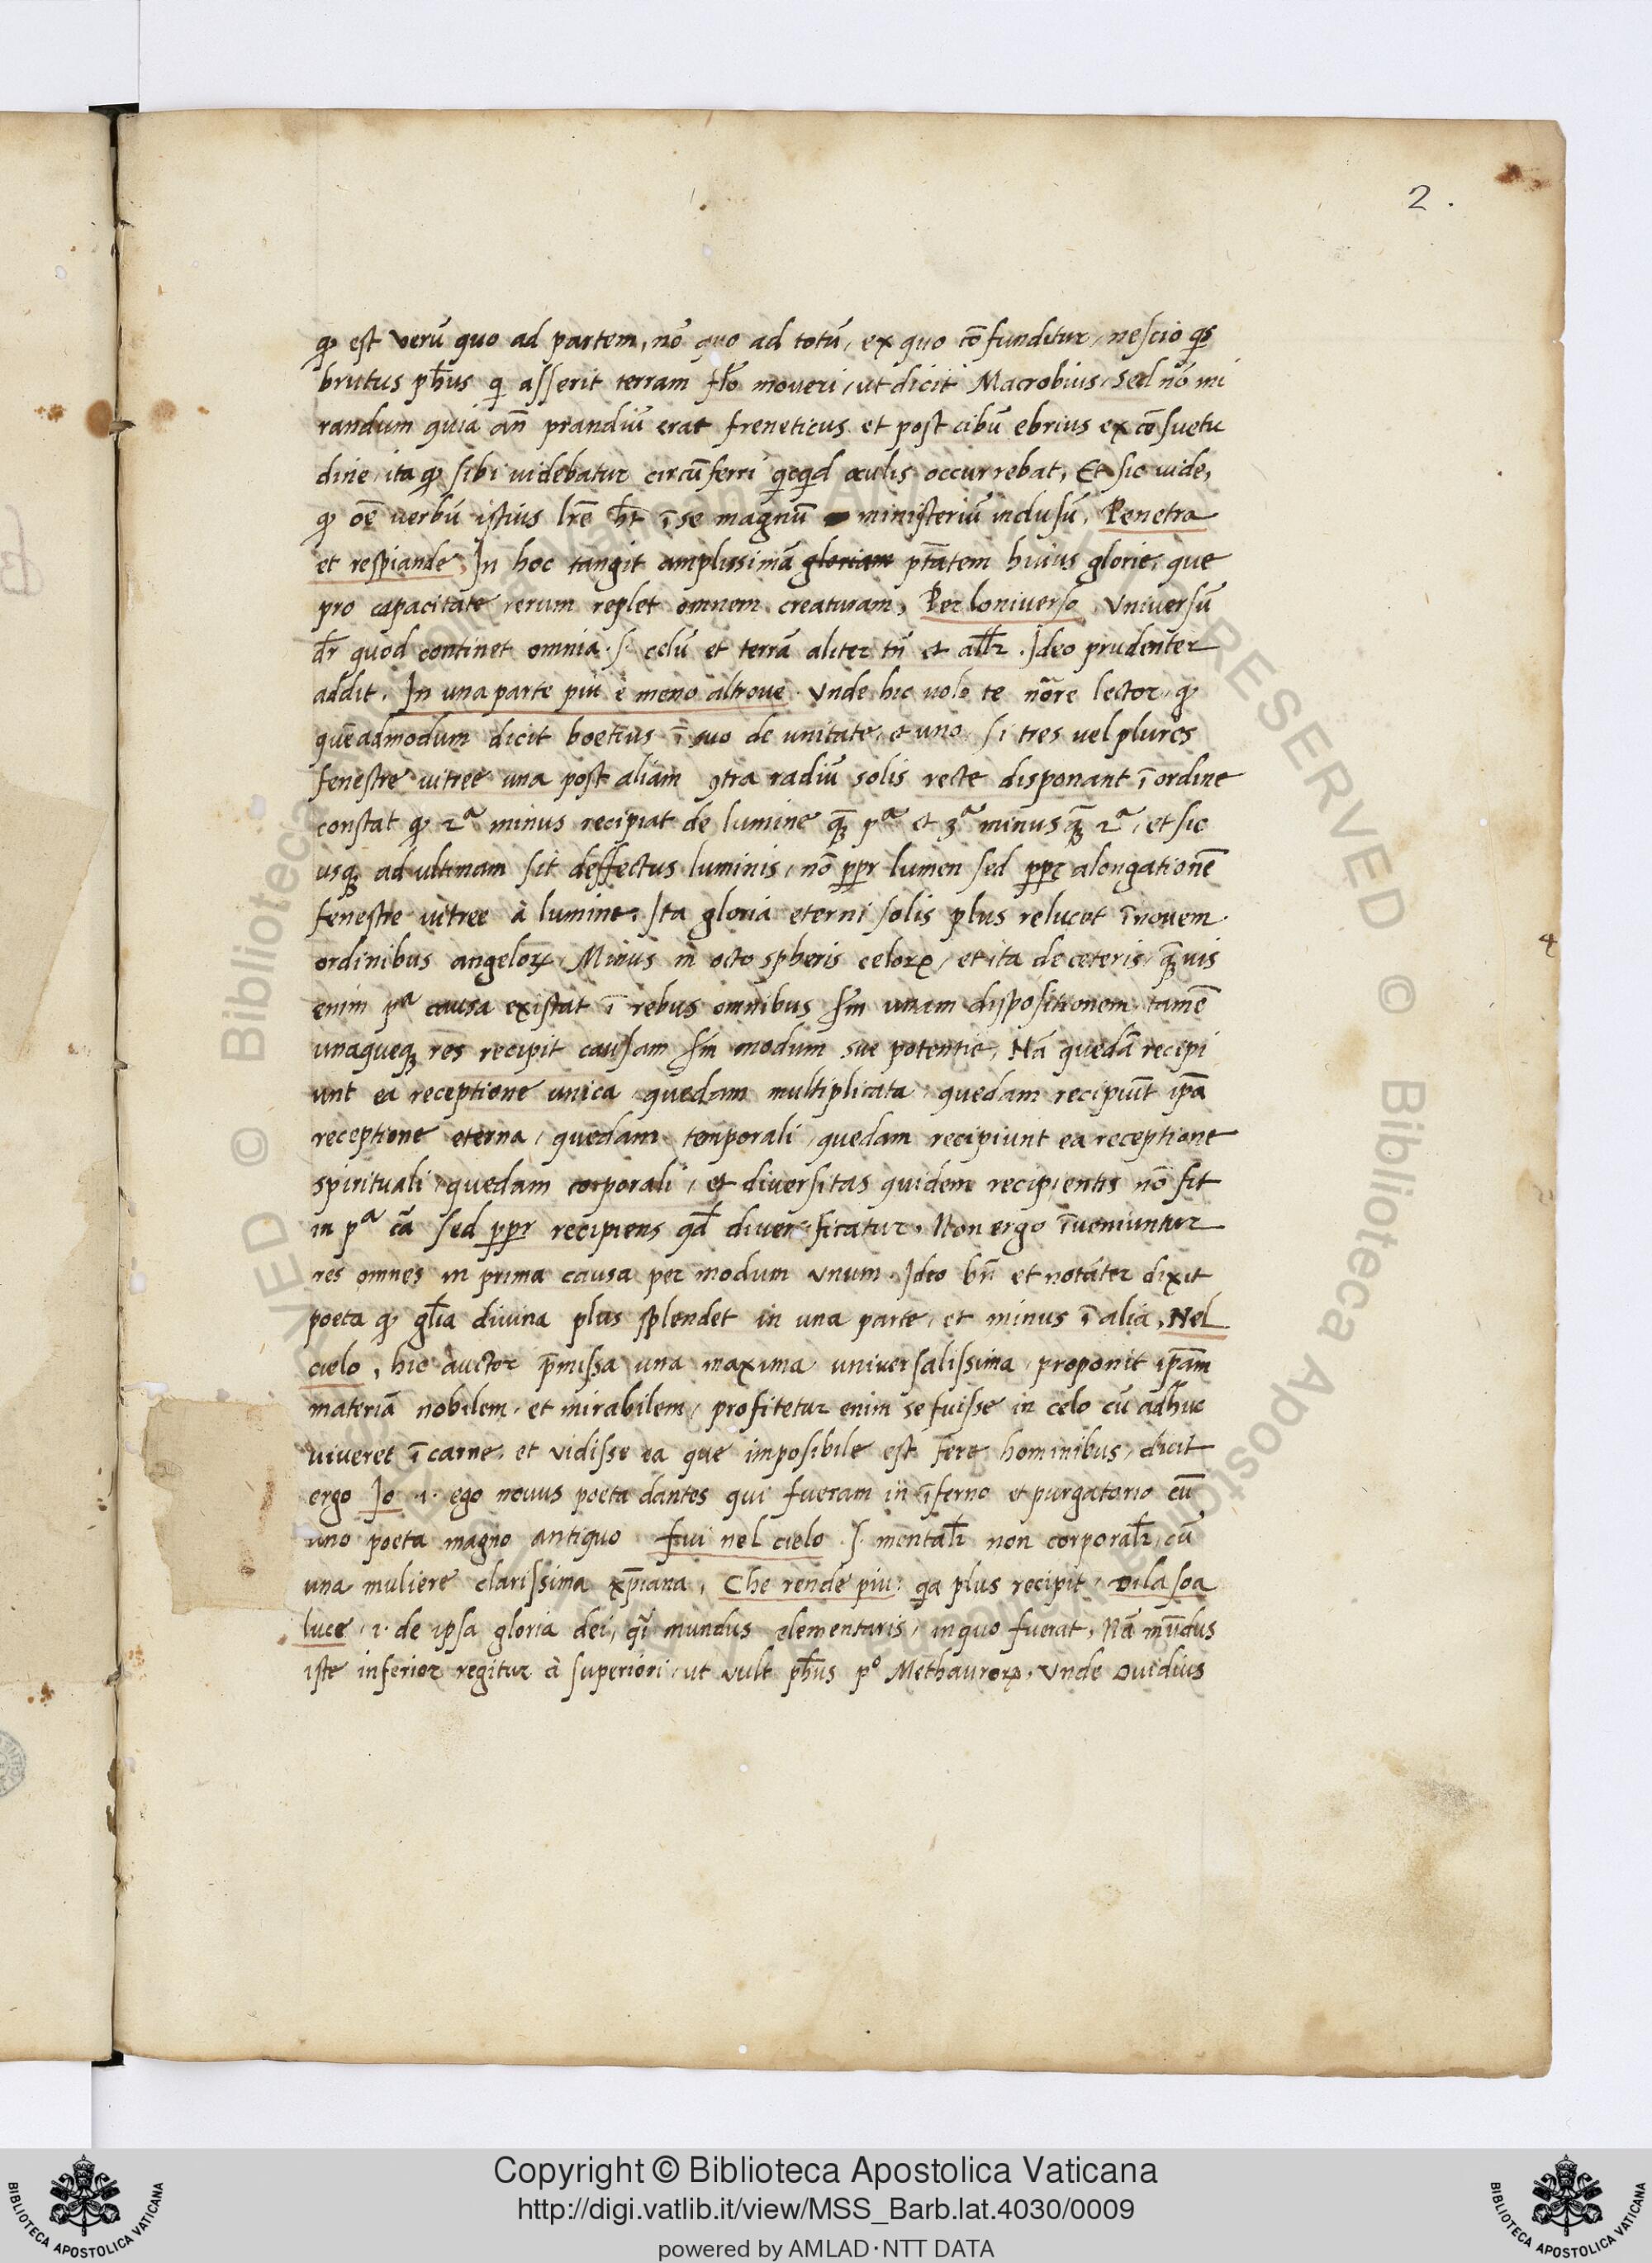 2.
ꝙ est verū quo ad partem, nō quo ad totū, ex quo cōfunditur, nescio qs
brutus ph̄us qͥ asserit terram moveri, ut dicit Macrobius, sed nō mi
randum quia an̄ prandiū erat freneticus et post cibū ebrius ex cōsuetu
dine, ita ꝙ sibi uidebatur circūferri qͥcqͥd oculis occurrebat, Et sic uide,
ꝙ oē uerbū istius lr̄e h̄t ī se magnū ministeriū inclusū, Penetra
et respiande, In hoc tangit amplissimā gloriam pt̄atem huius glorie, que
pro capacitate rerum replet omnem creaturam, Per loniverso, Universū
dr̄ quod continet omnia .s. celū et terrā aliter tn̄ et alr̄. Ideo prudenter
addit. In una parte piu e meno altroue. Unde hic uolo te nōre lector, ꝙ
quēadmodum dicit boetius ī suo de unitate, et uno, si tres vel plures
fenestre vitree una post aliam ꝯtra radiū solis recte disponant ī ordine
constat ꝙ 2ᵃ minus recipiat de lumine qꝫ pᵃ et 3ᵃ minus qꝫ 2ᵃ, et sic
usqꝫ ad ultimam fit deffectus luminis, nō ppr̄ lumen sed ppr̄ alongationē
fenestre vitree à lumine. Ita gloria eterni solis plus relucet ī novem
ordinibus angeloꝝ, Minus in octo spheris celoꝝ, et ita de ceteris, qꝫuis
enim pᵃ causa existat ī rebus omnibus sm̄ unam dispositionem, tamē
unaqueqꝫ res recipit causam sm̄ modum sue potentie, Nā quedā recipi
unt ea receptione unica, quedam multiplicata, quedam recipiūt ip̄a
receptione eterna, quedam temporali, quedam recipiunt ea receptione
spirituali, quedam corporali, et diversitas quidem recipientis nō fit
in pᵃ cā sed ppr̄ recipiens qd̄ diversificatur, Non ergo īveniuntur
res omnes in prima causa per modum unum. Ideo bn̄ et notāter dixit
poeta ꝙ gl̄ia divina plus splendet in una parte, et minus ī alia, Nel
cielo, hic auctor p̄missa una maxima universalissima, proponit ip̄am
materiā nobilem, et mirabilem, profitetur enim se fuisse in celo cū adhuc
viveret ī carne, et vidisse ea que imposibile est fere hominibus, dicit
ergo Io .i. ego novus poeta dantes qui fueram in īferno et purgatorio cū
uno poeta magno antiquo fui nel cielo .s. mentalr̄ non corporalr̄, cū
una muliere clarissima xp̄iana, Che rende piu, qa plus recipit, Dila soa
luce, .i. de ipsa gloria dei, qͣ mundus elementaris, in quo fuerat, Nā mūdus
iste inferior regitur à superiori, ut vult ph̄us pº Methauroꝝ. Unde Ovidius
Copyright © Biblioteca Apostolica Vaticana
http://digi.vatlib.it/view/MSS_Barb.lat.4030/0009
powered by AMLAD·NTT DATA